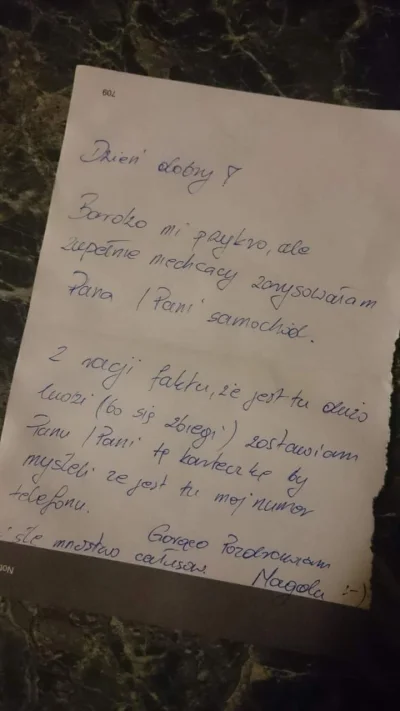 709
Dzień dobry!
Bardzo mi przykro, ale
zupełnie niechcący zarysowałam
Pana / Pani samochód.
Z racji faktu, że jest tu dużo
ludzi (bo się zbiegli) zostawiam
Panu / Pani tę karteczkę by
myśleli że jest tu mój numer
telefonu.
Gorąco Pozdrawiam
i ślę mnóstwo całusów. Magda :-)